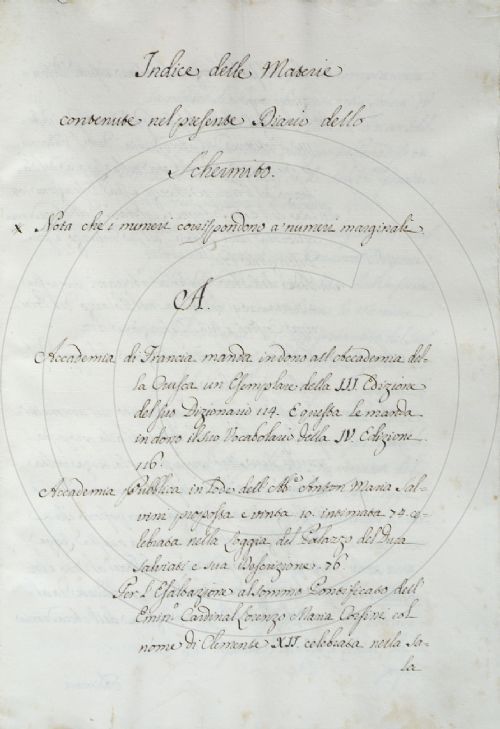 Indice delle Materie
contenute nel presente Diario dello
Schermito.
x Nota che i numeri corrispondono a' numeri marginali.
A.
Accademia di Francia manda in dono all'Accademia del-
la Crusca un Esemplare della III Edizione
del suo Dizionario 114. E questa le manda
in dono il suo Vocabolario della IV. Edizione
116.
Accademia Pubblica in Lode dell'Abb.e Anton Maria Sal-
vini proposta e vinta 10. intimata 74. ce-
lebrata nella Loggia del Palazzo del Duca
Salviati e sua Descrizione. 76.
Per l'Esaltazione al sommo Pontificato dell'
Emin.o Cardinal Lorenzo Maria Corsini col
nome di Clemente XII. celebrata nella Sa-
la